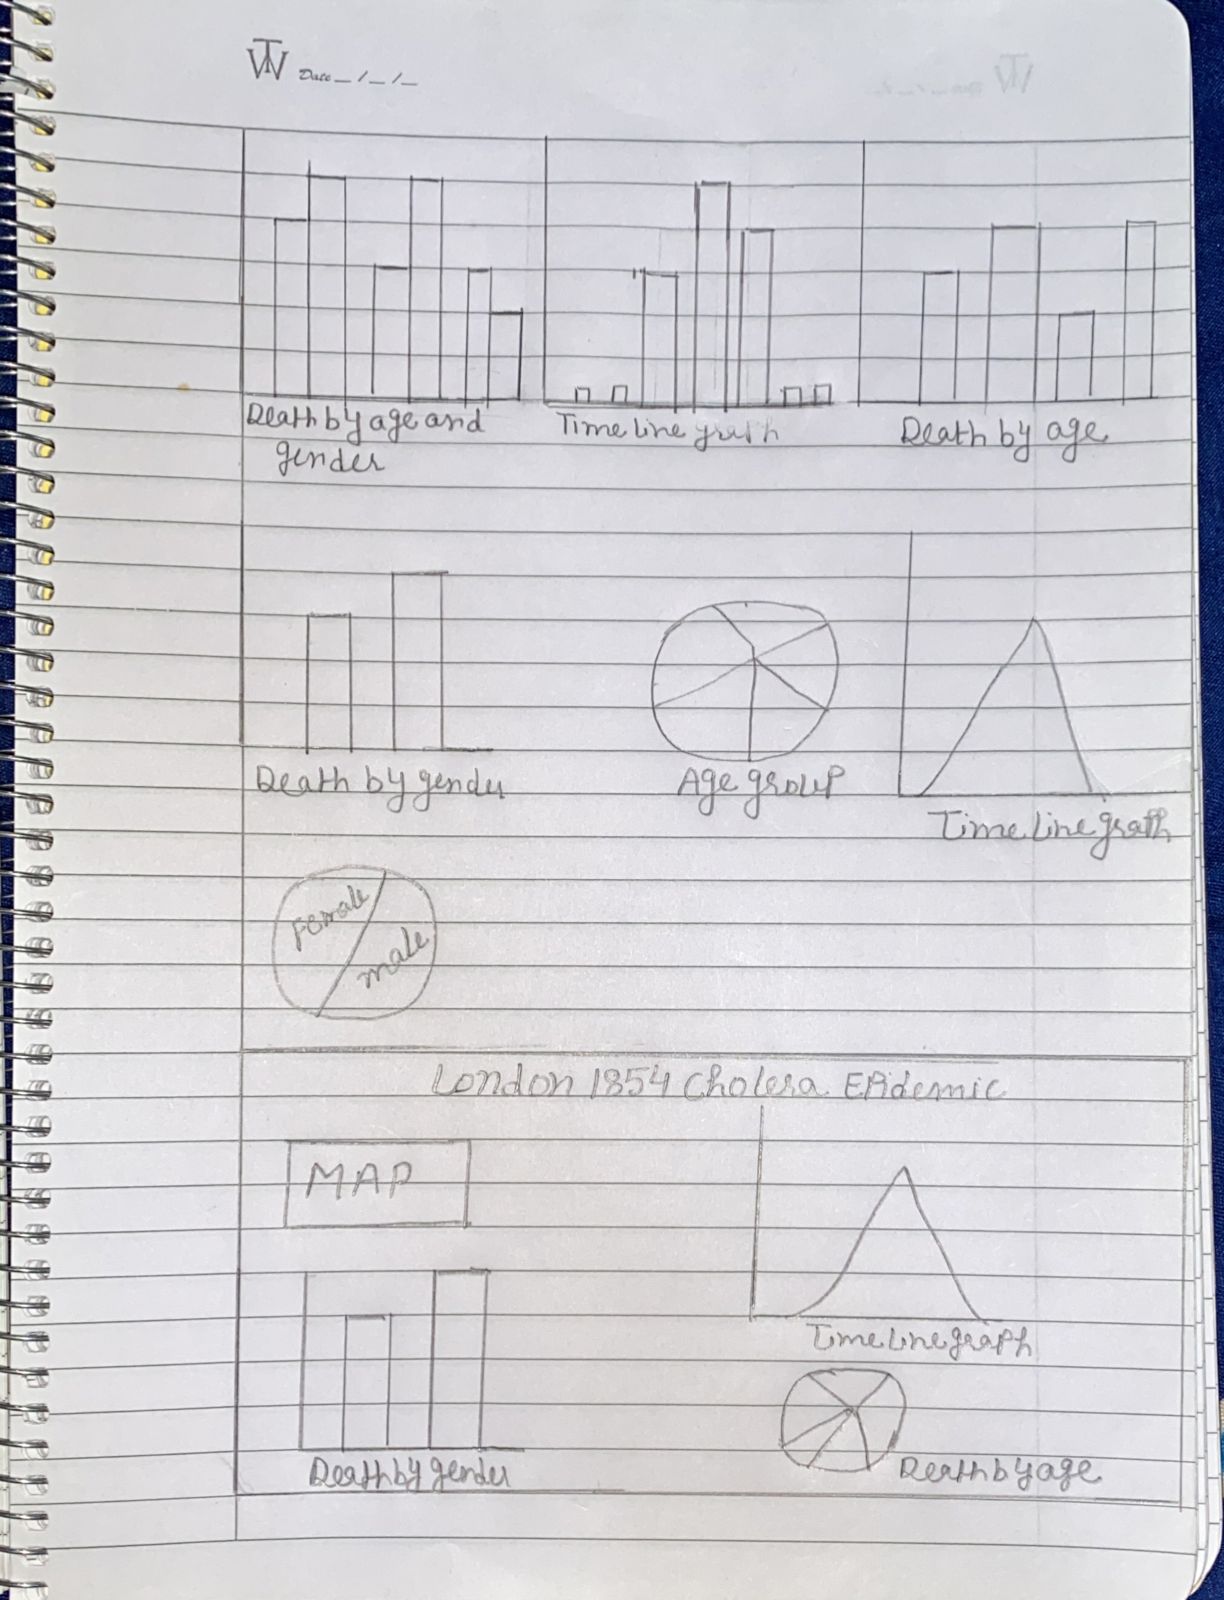 TW Date _ / _ / _
Death by age and
gender
Time line graph
Death by age
Death by gender
Age group
Time line graph
Female
male
London 1854 Cholera Epidemic
MAP
Time line graph
Death by gender
Death by age